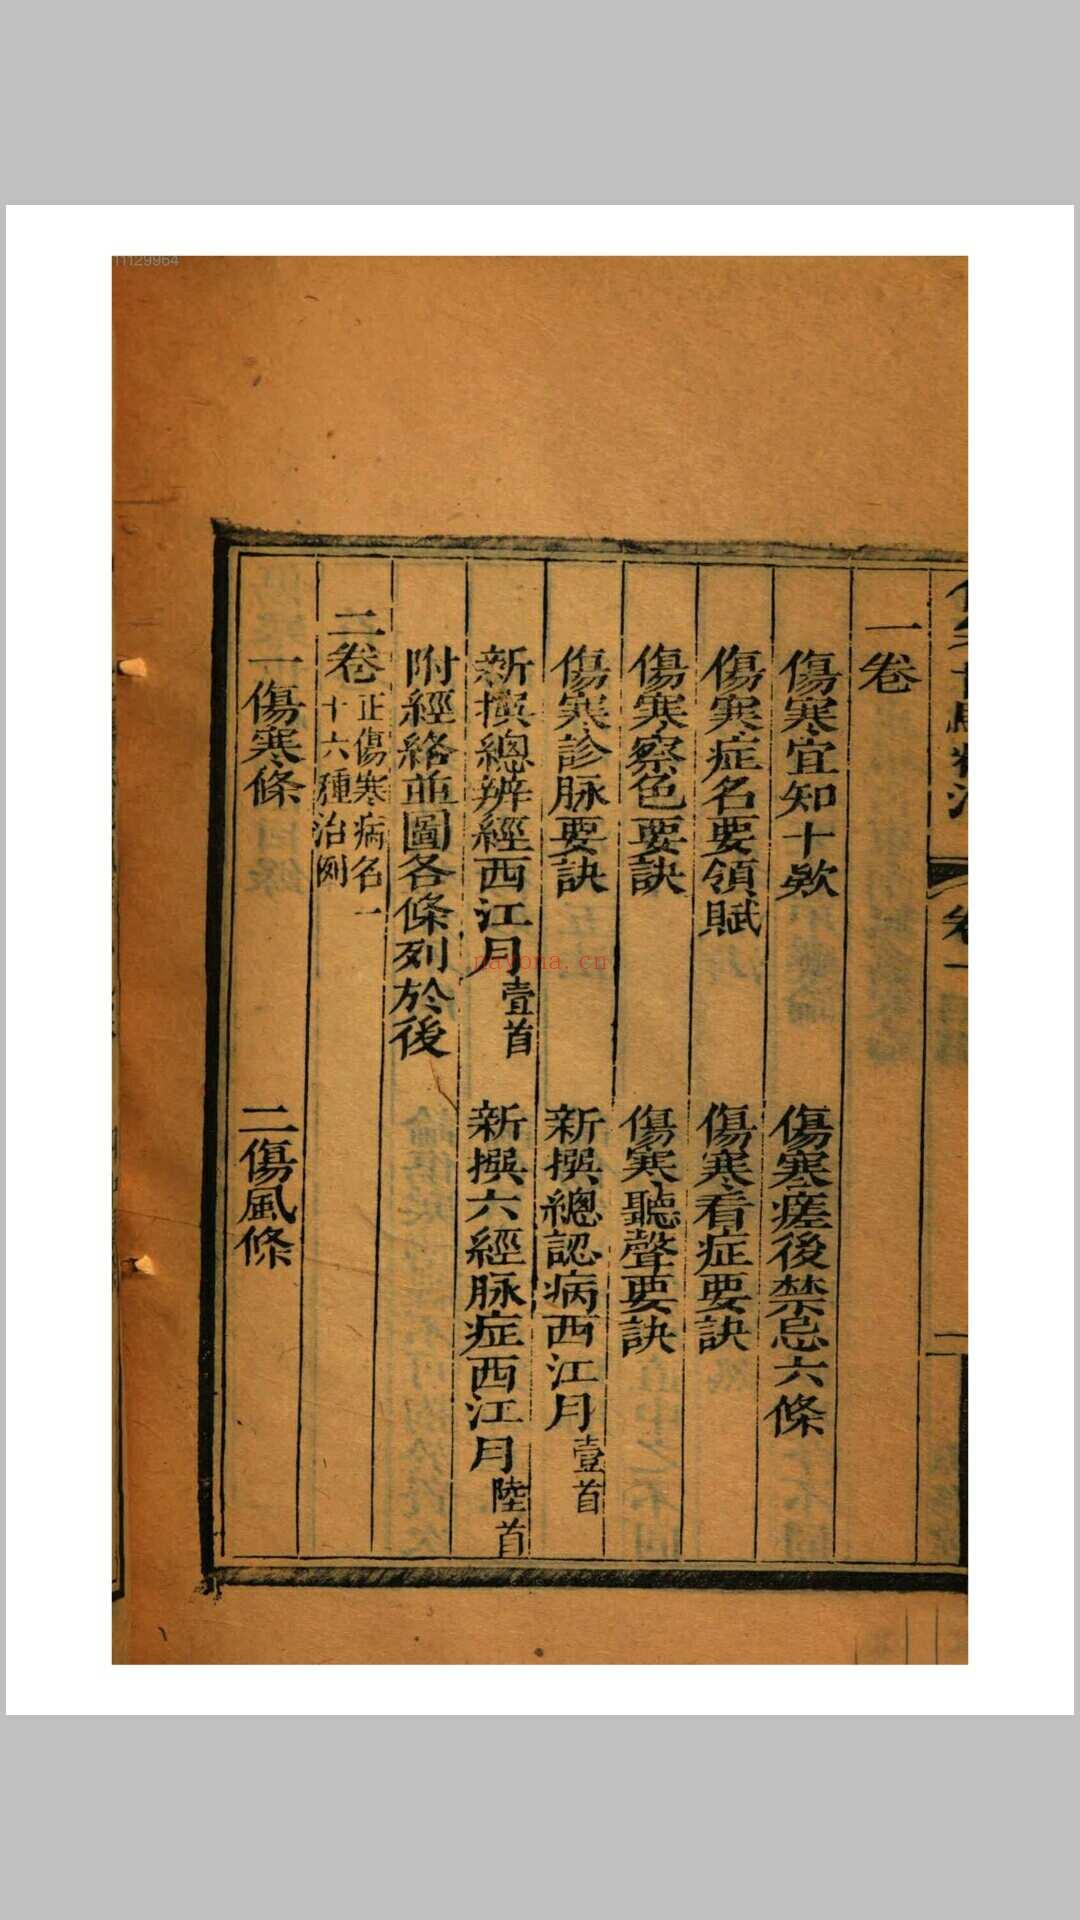 11129964
一卷
傷寒宜知十欵
傷寒瘥後禁忌六條
傷寒症名要領賦
傷寒看症要訣
傷寒察色要訣
傷寒聽聲要訣
傷寒診脉要訣
新撰總認病西江月壹首
新撰總辨經西江月壹首
新撰六經脉症西江月陸首
附經絡並圖各條列於後
二卷
正傷寒病名一
十六種治例
一傷寒條
二傷風條
卷一
二
nayona.cn